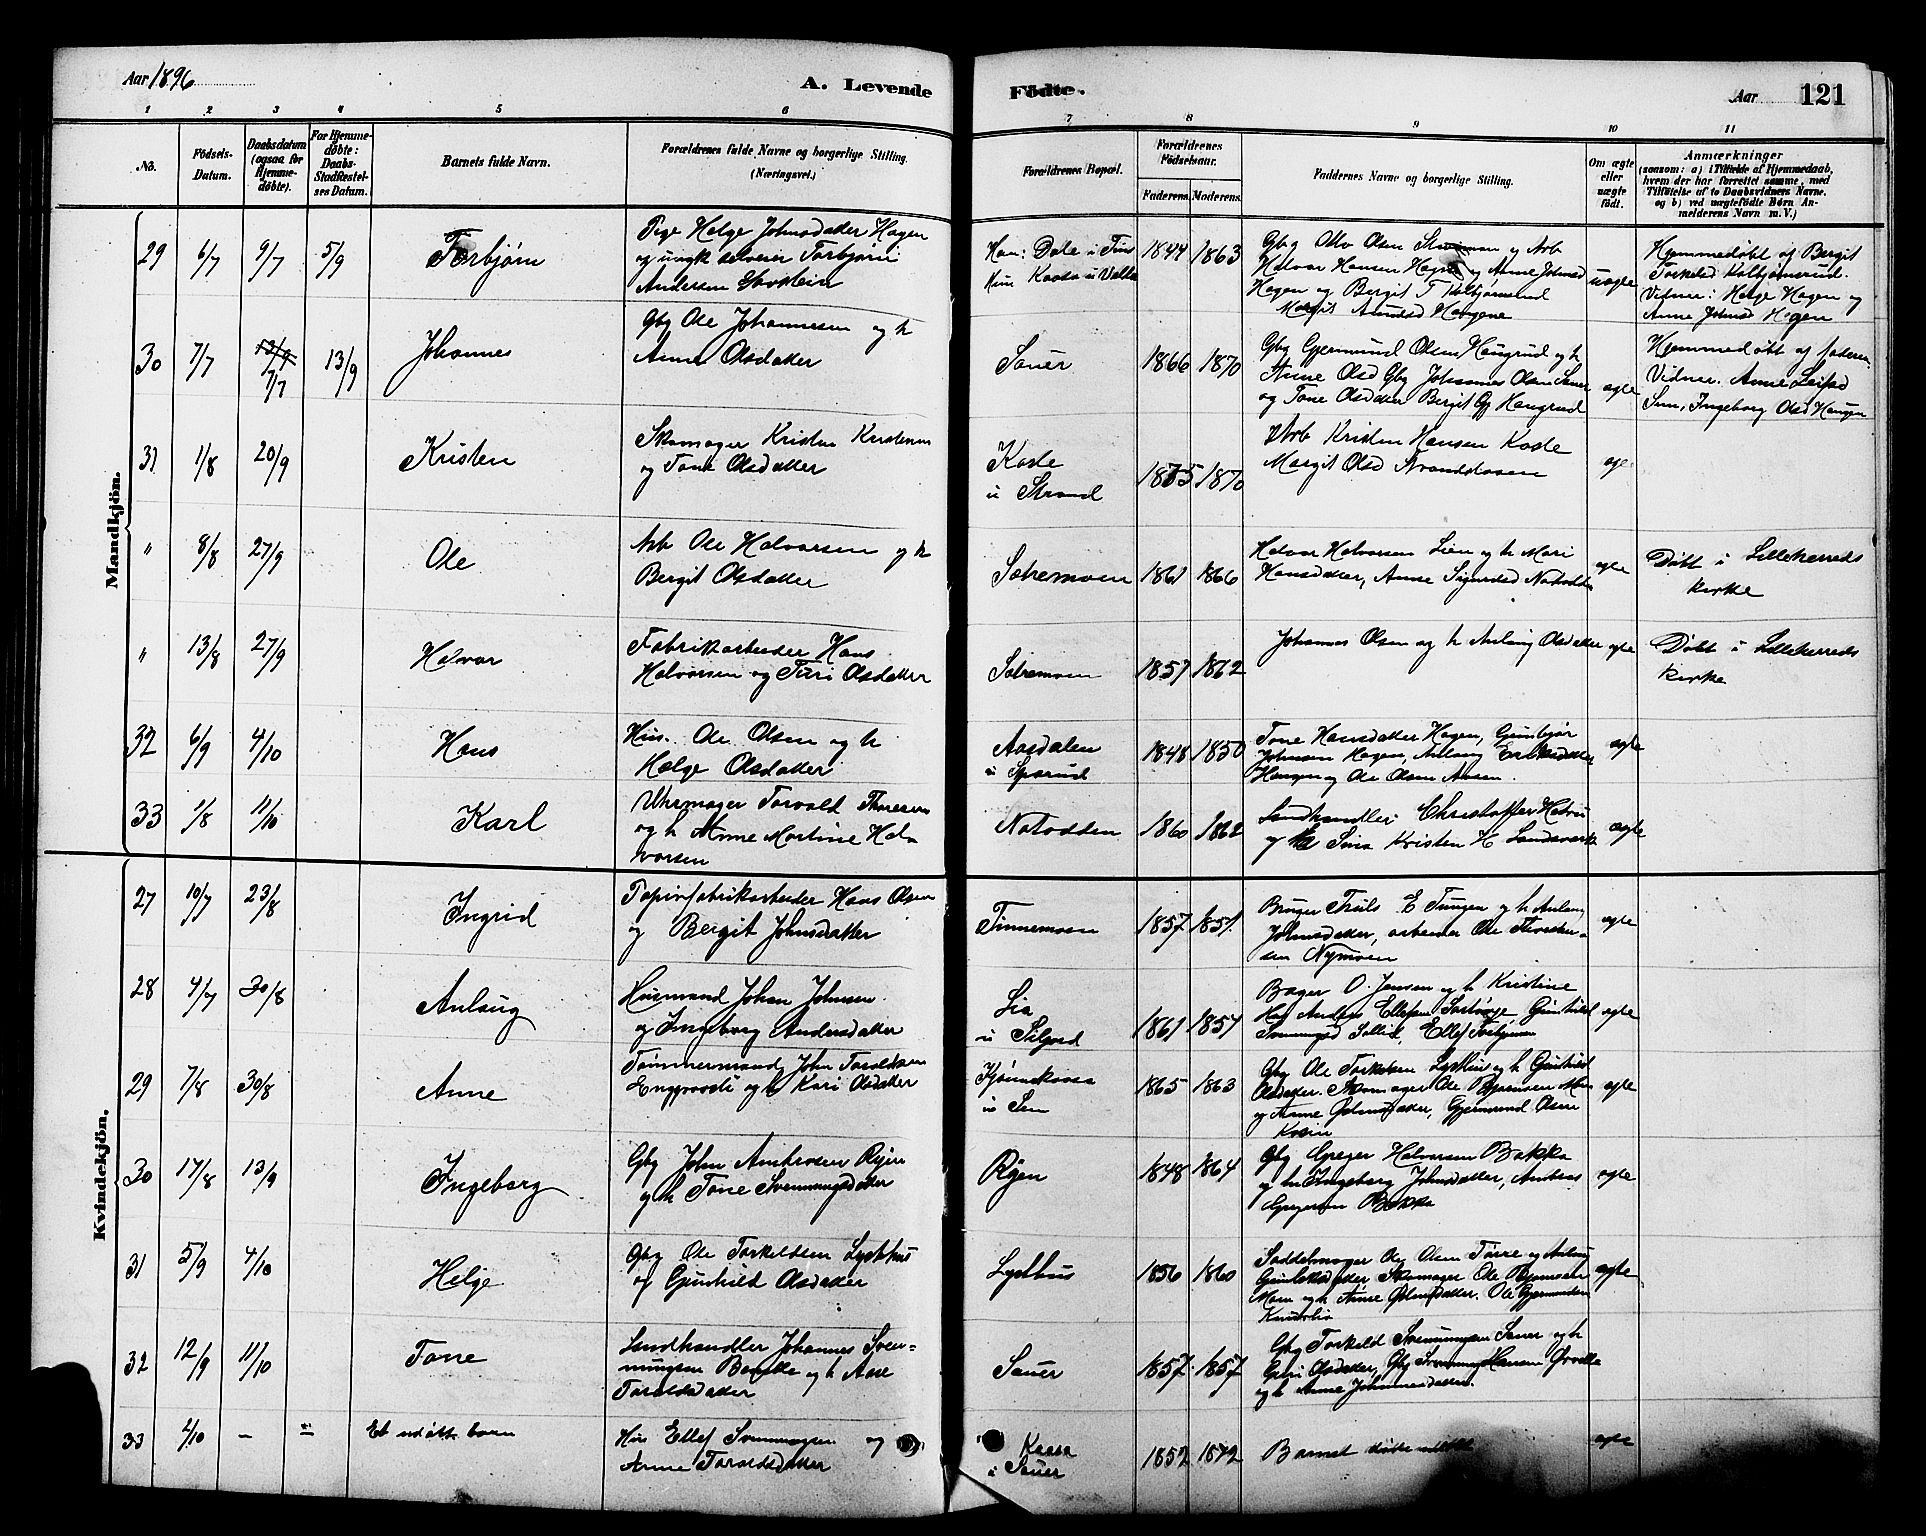 Aar 1896
A. Levende
Födte.
Aar
121
1 2 3 4 5 6 7 8 9 10 11
No.
Födsels-
Datum.
Daabsdatum
(ogsaa for
Hjemme-
döbte).
For Hjemme-
döbte:
Daabs-
Stadfæstel-
ses Datum.
Barnets fulde Navn.
Forældrenes fulde Navne og borgerlige Stilling.
(Næringsvei.)
Forældrenes Bopæl.
Forældrenes
Födselsaar.
Faderens.
Moderens.
Faddernes Navne og borgerlige Stilling.
Om ægte
eller
uægte
födt.
Anmærkninger
(saasom: a) i Tilfælde af Hjemmedaab,
hvem der har forrettet samme, med
Tilföielse af to Daabsvidners Navne.
og b) ved uægtefödte Börn An-
melderens Navn m. V.)
Mandkjön.
29 6/7 9/7 5/9 Torbjørn
Pige Helge Johnsdatter Hagen
og ungk selveier Torbjørn
Andersen
Ham: Dale i Tinn
Hun Kaasa u
1844 1863
Gbg Olav Olsen og Arb
Halvor Hansen Hagen og Anne Johnsd
Hagen og Bergit T Kolbjørnsrud
Margit Amundsd Haugene
uægte
Hjemmedøbt af Bergit
Torkelsd Kolbjørnsrud.
Vidner: Helge Hagen og
Anne Johnsd Hagen
30 7/7 13/9 7/7 13/9 Johannes
Gbg Ole Johannesen og h
Anne Olsdatter
Sauer
1866 1870
Gbg Gjermund Olsen Haugrud og h
Anne Olsd Gbg Johannes Olsen Sauer
og Tone Olsdatter Bergit Haugrud
ægte
Hjemmedøbt af faderen
Vidner: Anne Leifsd
Sem, Ingeborg Olsd Haugen
31 1/8 20/9 Kristen
Skomager Kristen Kristensen
og Tone Olsdatter
Kaste
u Strand
1875 1870
Arb Kristen Hansen Kaste
Margit Olsd
ægte
" 8/8 27/9 Ole
Arb Ole Halvorsen og h
Bergit Olsdatter
Sætremoen
1861 1866
Halvor Halvorsen Lien og h Mari
Hansdatter, Anne Sigurdsd Notodden
ægte
Døbt i Lilleherreds
kirke
" 13/8 27/9 Halvor
Fabrikarbeider Hans
Halvorsen og Turi Olsdatter
Sætremoen
1857 1862
Johannes Olsen og h Anlaug Olsdatter
ægte
Døbt i Lilleherreds
kirke
32 6/9 4/10 Hans
Hus. Ole Olsen og h
Helge Olsdatter
Aasdalen
u Sparud
1848 1850
Tone Hansdatter Hagen, Gunbjør
Johnsen Hagen, Anlaug Eriksdatter
Haugen og Ole Olsen
ægte
33 1/8 11/10 Karl
Uhrmager Torvald Thoresen
og h Anne Martine Hal-
vorsen
Notodden
1860 1862
Landhandler Christoffer
og Sina Kristen H Landsverk
ægte
Kvindekjön.
27 10/7 23/8 Ingrid
Papirfabrikarbeider Hans Olsen
og Bergit Johnsdatter
Tinnemoen
1857 1851
Bruger Truls E Tungen og h Anlaug
Johnsdatter, arbeider Ole
sen Nymoen
ægte
28 4/7 30/8 Anlaug
Husmand Johan Johnsen
og Ingeborg Andersdatter
Lia
u
1861 1854
Bager O. Jensen og h Kristine
Anders Ellefsen Gunhild
Svenungsd Ellef Torbjørnsen
ægte
29 7/8 30/8 Anne
Tømmermand John Toraldsen
og h Kari Olsdatter
Kjønnekaasa
u Sem
1865 1863
Gbg Ole Torkelsen Lysthus og h Gunhild
Olsdatter. Skomager Ole Bjørnsen Moen
og Anne datter, Gjermund Olsen
ægte
30 17/8 13/9 Ingeborg
Gbg John Ambrosen Ryen
og h Tone Svennungsdatter
Ryen
1848 1864
Gbg Greger Halvorsen Bakka
og h Ingeborg Johnsdatter, Anders
Gregersen Bakka
ægte
31 5/9 4/10 Helge
Gbg Ole Torkildsen Lysthus
og Gunhild Olsdatter
Lysthus
1856 1860
Saddelmager Ole Olsen og Anlaug
Skomager Ole Bjørnsen
Moen og h Anne datter. Ole Gjermundsen
ægte
32 12/9 11/10 Tone
Landhandler Johannes Sven-
nungsen og h Aase
Toraldsdatter
Sauer
1857 1857
Gbg Torkild Svennungsen Sauer og h
Olsdatter, Gbg Svennung Hansen Ørvella
og h Anne Johannesdatter.
ægte
33 2/10 - = Et udøbt barn
Hus Ellef Svennungsen og
Anne Toraldsdatter
Kaasa
u Sauer
1852 1872
Barnet døde udøbt
ægte